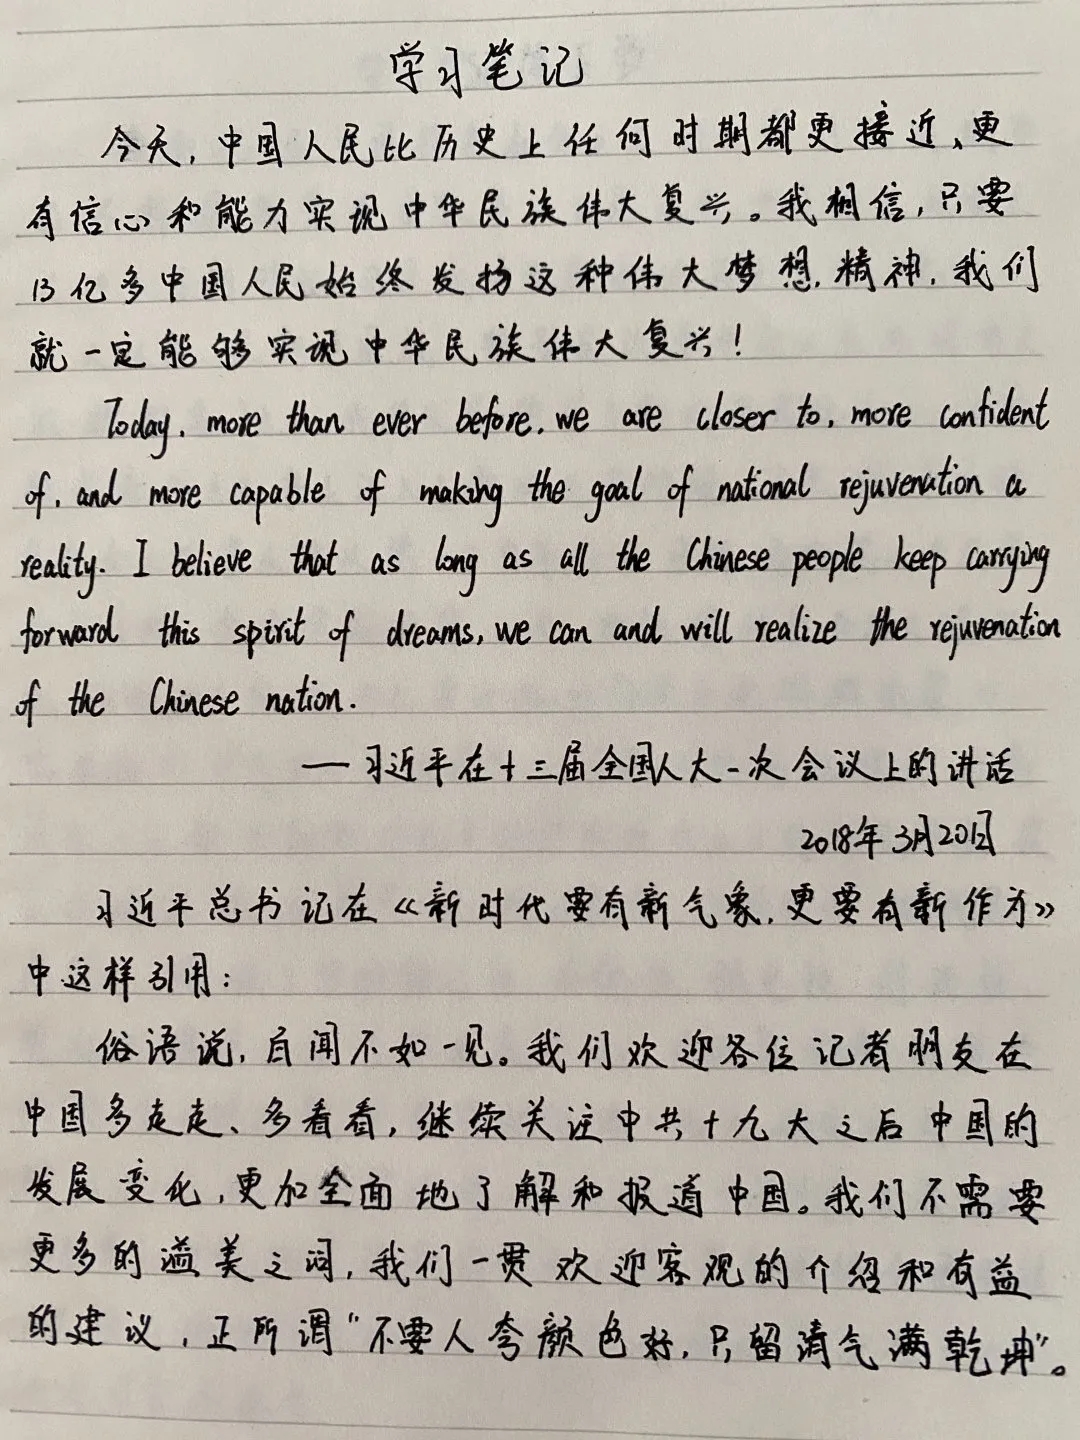 学习笔记
今天,中国人民比历史上任何时期都更接近、更
有信心和能力实现中华民族伟大复兴。我相信,只要
13亿多中国人民始终发扬这种伟大梦想精神,我们
就一定能够实现中华民族伟大复兴!
Today, more than ever before, we are closer to, more confident
of, and more capable of making the goal of national rejuvenation a
reality. I believe that as long as all the Chinese people keep carrying
forward this spirit of dreams, we can and will realize the rejuvenation
of the Chinese nation.
—习近平在十三届全国人大一次会议上的讲话
2018年3月20日
习近平总书记在《新时代要有新气象,更要有新作为》
中这样引用:
俗语说,百闻不如一见。我们欢迎各位记者朋友在
中国多走走、多看看,继续关注中共十九大之后中国的
发展变化,更加全面地了解和报道中国。我们不需要
更多的溢美之词,我们一贯欢迎客观的介绍和有益
的建议,正所谓"不要人夸颜色好,只留清气满乾坤"。